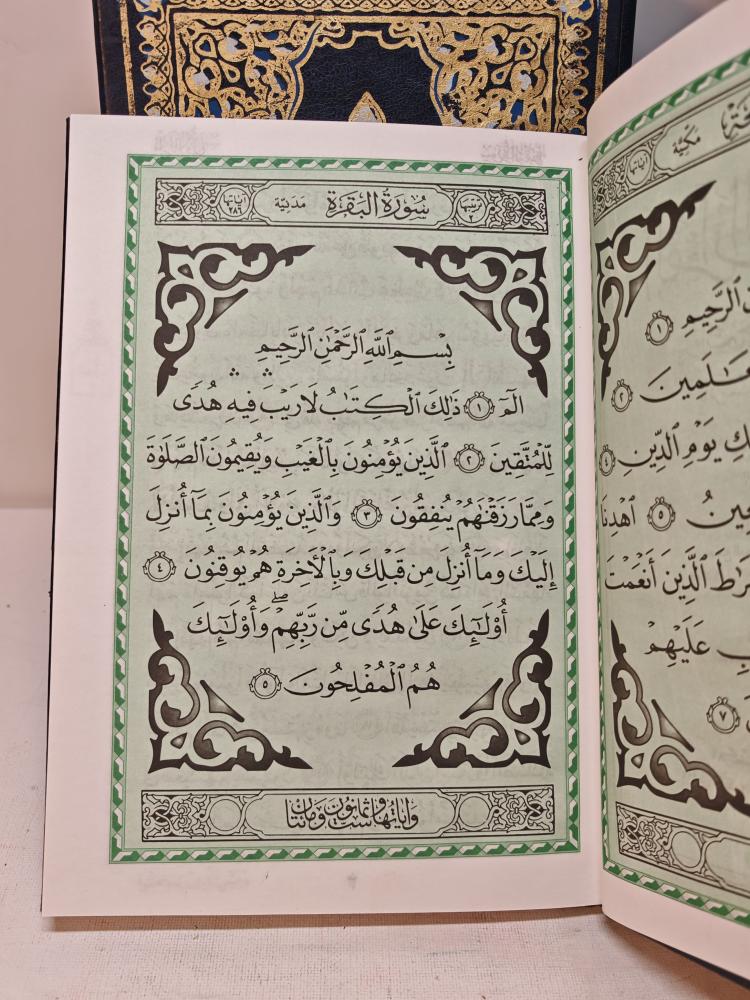 ٱلرَّحِيمِ ١
ٱلْعَٰلَمِينَ ٢
يَوْمِ ٱلدِّينِ ٤
٥ ٱهْدِنَا
ٱلَّذِينَ أَنْعَمْتَ
عَلَيْهِمْ
٧
ترتيبها ٢ سُورَةُ ٱلْبَقَرَةِ مَدَنِيَّة آياتها ٢٨٦
بِسْمِ ٱللَّهِ ٱلرَّحْمَٰنِ ٱلرَّحِيمِ
الٓمٓ ١ ذَٰلِكَ ٱلْكِتَٰبُ لَا رَيْبَ ۛ فِيهِ ۛ هُدًى
لِّلْمُتَّقِينَ ٢ ٱلَّذِينَ يُؤْمِنُونَ بِٱلْغَيْبِ وَيُقِيمُونَ ٱلصَّلَوٰةَ
وَمِمَّا رَزَقْنَٰهُمْ يُنفِقُونَ ٣ وَٱلَّذِينَ يُؤْمِنُونَ بِمَآ أُنزِلَ
إِلَيْكَ وَمَآ أُنزِلَ مِن قَبْلِكَ وَبِٱلْءَاخِرَةِ هُمْ يُوقِنُونَ ٤
أُو۟لَٰٓئِكَ عَلَىٰ هُدًى مِّن رَّبِّهِمْ ۖ وَأُو۟لَٰٓئِكَ
هُمُ ٱلْمُفْلِحُونَ ٥
وآياتها ست وثمانون ومائتان